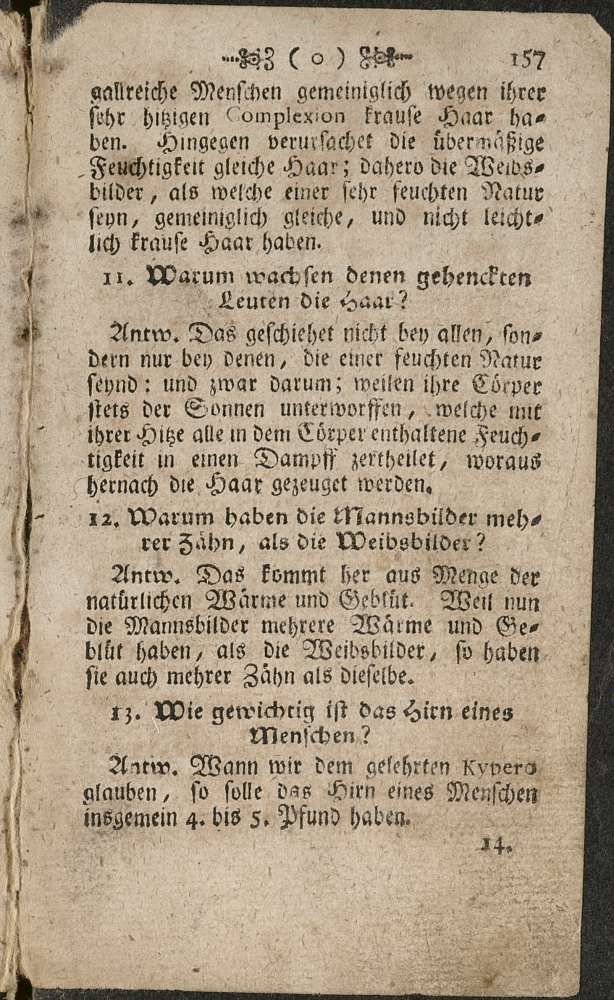 ( o ) 157
gallreiche Menschen gemeiniglich wegen ihrer
sehr hitzigen Complexion krause Haar ha-
ben. Hingegen verursachet die übermäßige
Feuchtigkeit gleiche Haar; dahero die Weibs-
bilder, als welche einer sehr feuchten Natur
seyn, gemeiniglich gleiche, und nicht leicht-
lich krause Haar haben.
11. Warum wachsen denen gehenckten
Leuten die Haar?
Antw. Das geschiehet nicht bey allen, son-
dern nur bey denen, die einer feuchten Natur
seynd: und zwar darum; weilen ihre Cörper
stets der Sonnen unterworffen, welche mit
ihrer Hitze alle in dem Cörper enthaltene Feuch-
tigkeit in einen Dampff zertheilet, woraus
hernach die Haar gezeuget werden.
12. Warum haben die Mannsbilder meh-
rer Zähn, als die Weibsbilder?
Antw. Das kommt her aus Menge der
natürlichen Wärme und Geblüt. Weil nun
die Mannsbilder mehrere Wärme und Ge-
blüt haben, als die Weibsbilder, so haben
sie auch mehrer Zähn als dieselbe.
13. Wie gewichtig ist das Hirn eines
Menschen?
Antw. Wann wir dem gelehrten Kypero
glauben, so solle das Hirn eines Menschen
insgemein 4. bis 5. Pfund haben.
14.